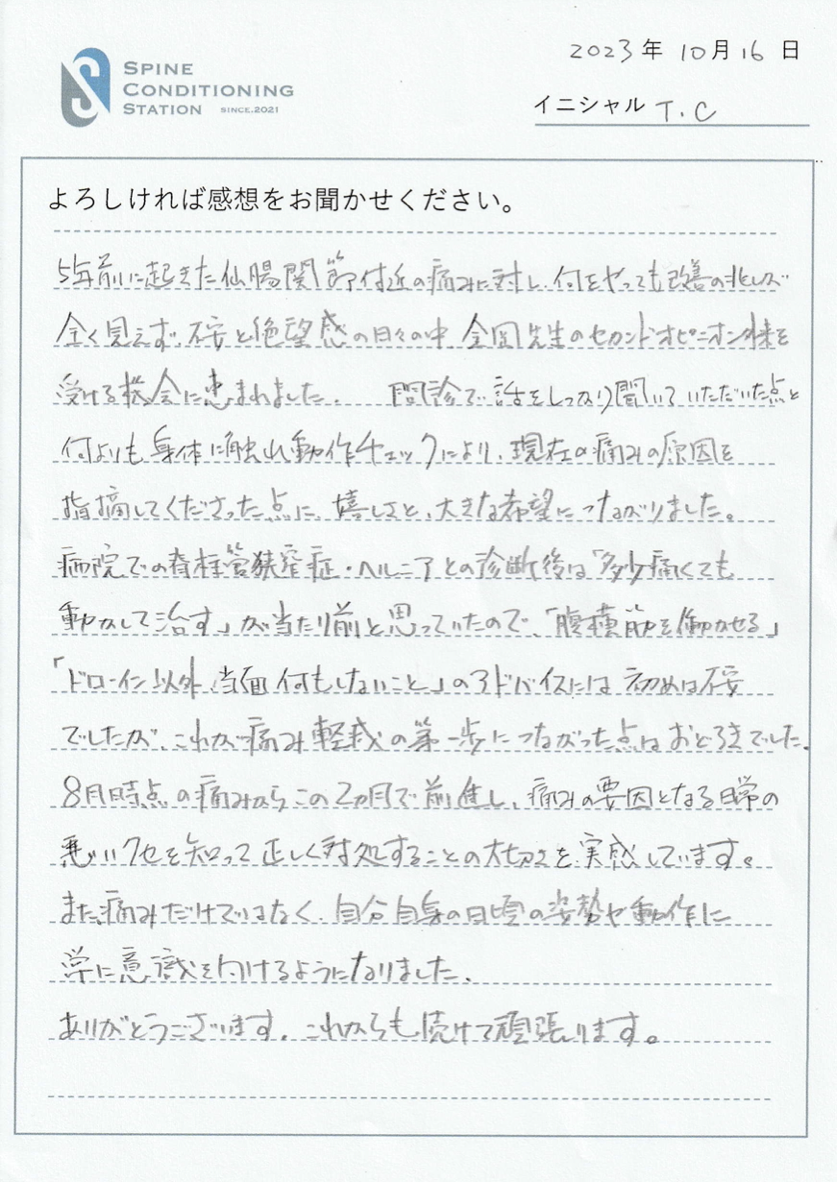 SPINE
CONDITIONING
STATION SINCE.2021
2023年 10月16日
イニシャル T.C
よろしければ感想をお聞かせください。
5年前に起きた仙腸関節付近の痛みに対し、何をやっても改善の兆しが
全く見えず、不安と絶望感の日々の中、金岡先生のセカンドオピニオン外来を
受ける機会に恵まれました。 問診で話をしっかり聞いていただいた点と
何よりも身体に触れ動作チェックにより、現在の痛みの原因を
指摘してくださった点に、嬉しさと、大きな希望につながりました。
病院での脊柱管狭窄症・ヘルニアとの診断後は「多少痛くても
動かして治す」が当たり前と思っていたので、「腹横筋を働かせる」
「ドローイン以外、当面何もしないこと」のアドバイスには初めは不安
でしたが、これが痛み軽減の第一歩につながった点はおどろきでした。
8月時点の痛みからこの2カ月で前進し、痛みの要因となる日常の
悪いクセを知って正しく対処することの大切さを実感しています。
また痛みだけではなく、自分自身の日頃の姿勢や動作に
常に意識を付けるようになりました。
ありがとうございます。これからも続けて頑張ります。